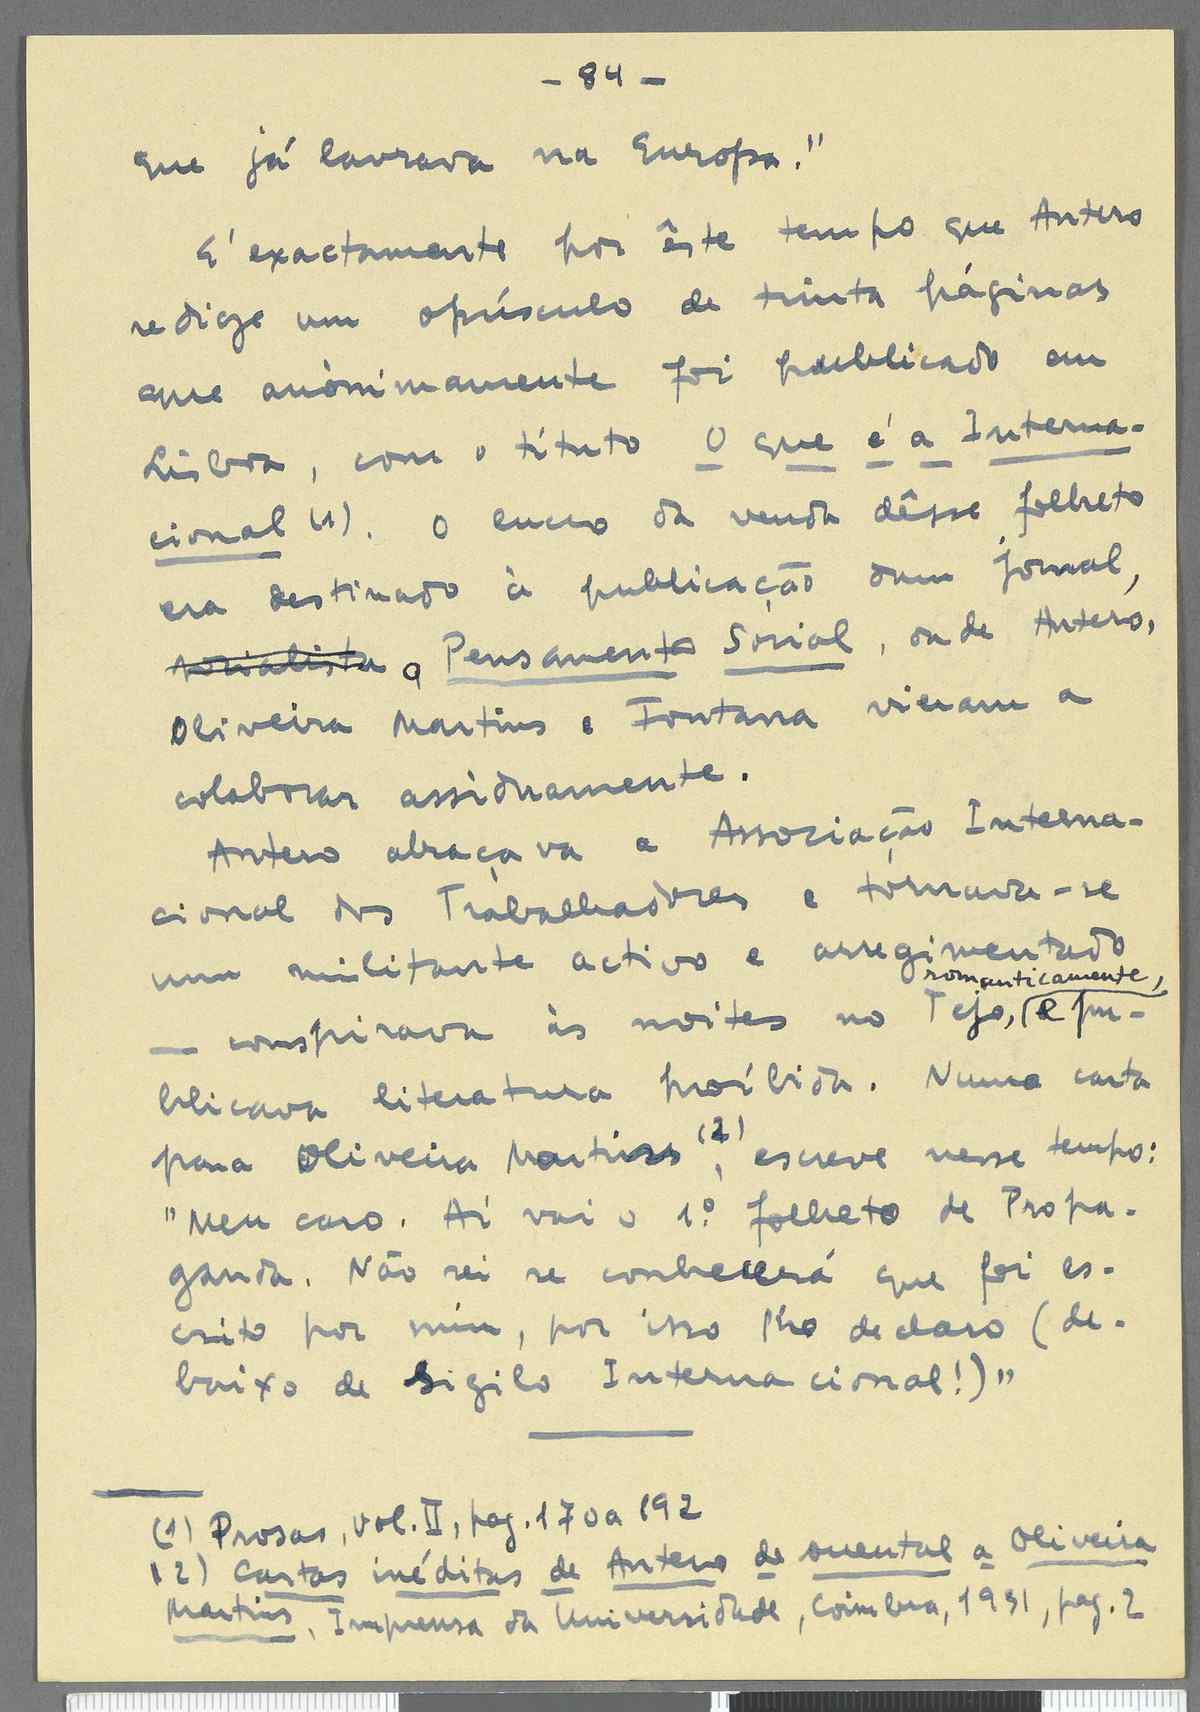 - 84 -
que já lavrava na Europa."
É exactamente por êste tempo que Antero
redige um opúsculo de trinta páginas
que anònimamente foi publicado em
Lisboa, com o título O que é a Interna-
cional (1). O lucro da venda dêsse folheto
era destinado à publicação dum jornal,
socialista o Pensamento Social, onde Antero,
Oliveira Martins e Fontana vieram a
colaborar assìduamente.
Antero abraçava a Associação Interna-
cional dos Trabalhadores e tornava-se
um militante activo e arregimentado
romanticamente,
— conspirava às noites no Tejo, e pu-
blicava literatura proíbida. Numa carta
para Oliveira Martins (2), escreve nesse tempo:
"Meu caro. Aí vai o 1.º folheto de Propa-
ganda. Não sei se conhecerá que foi es-
crito por mim, por isso lho declaro (de-
baixo de Sigilo Internacional!)"
(1) Prosas, vol. II, pag. 170 a 192
(2) Cartas inéditas de Antero de Quental a Oliveira
Martins, Imprensa da Universidade, Coimbra, 1931, pag. 2